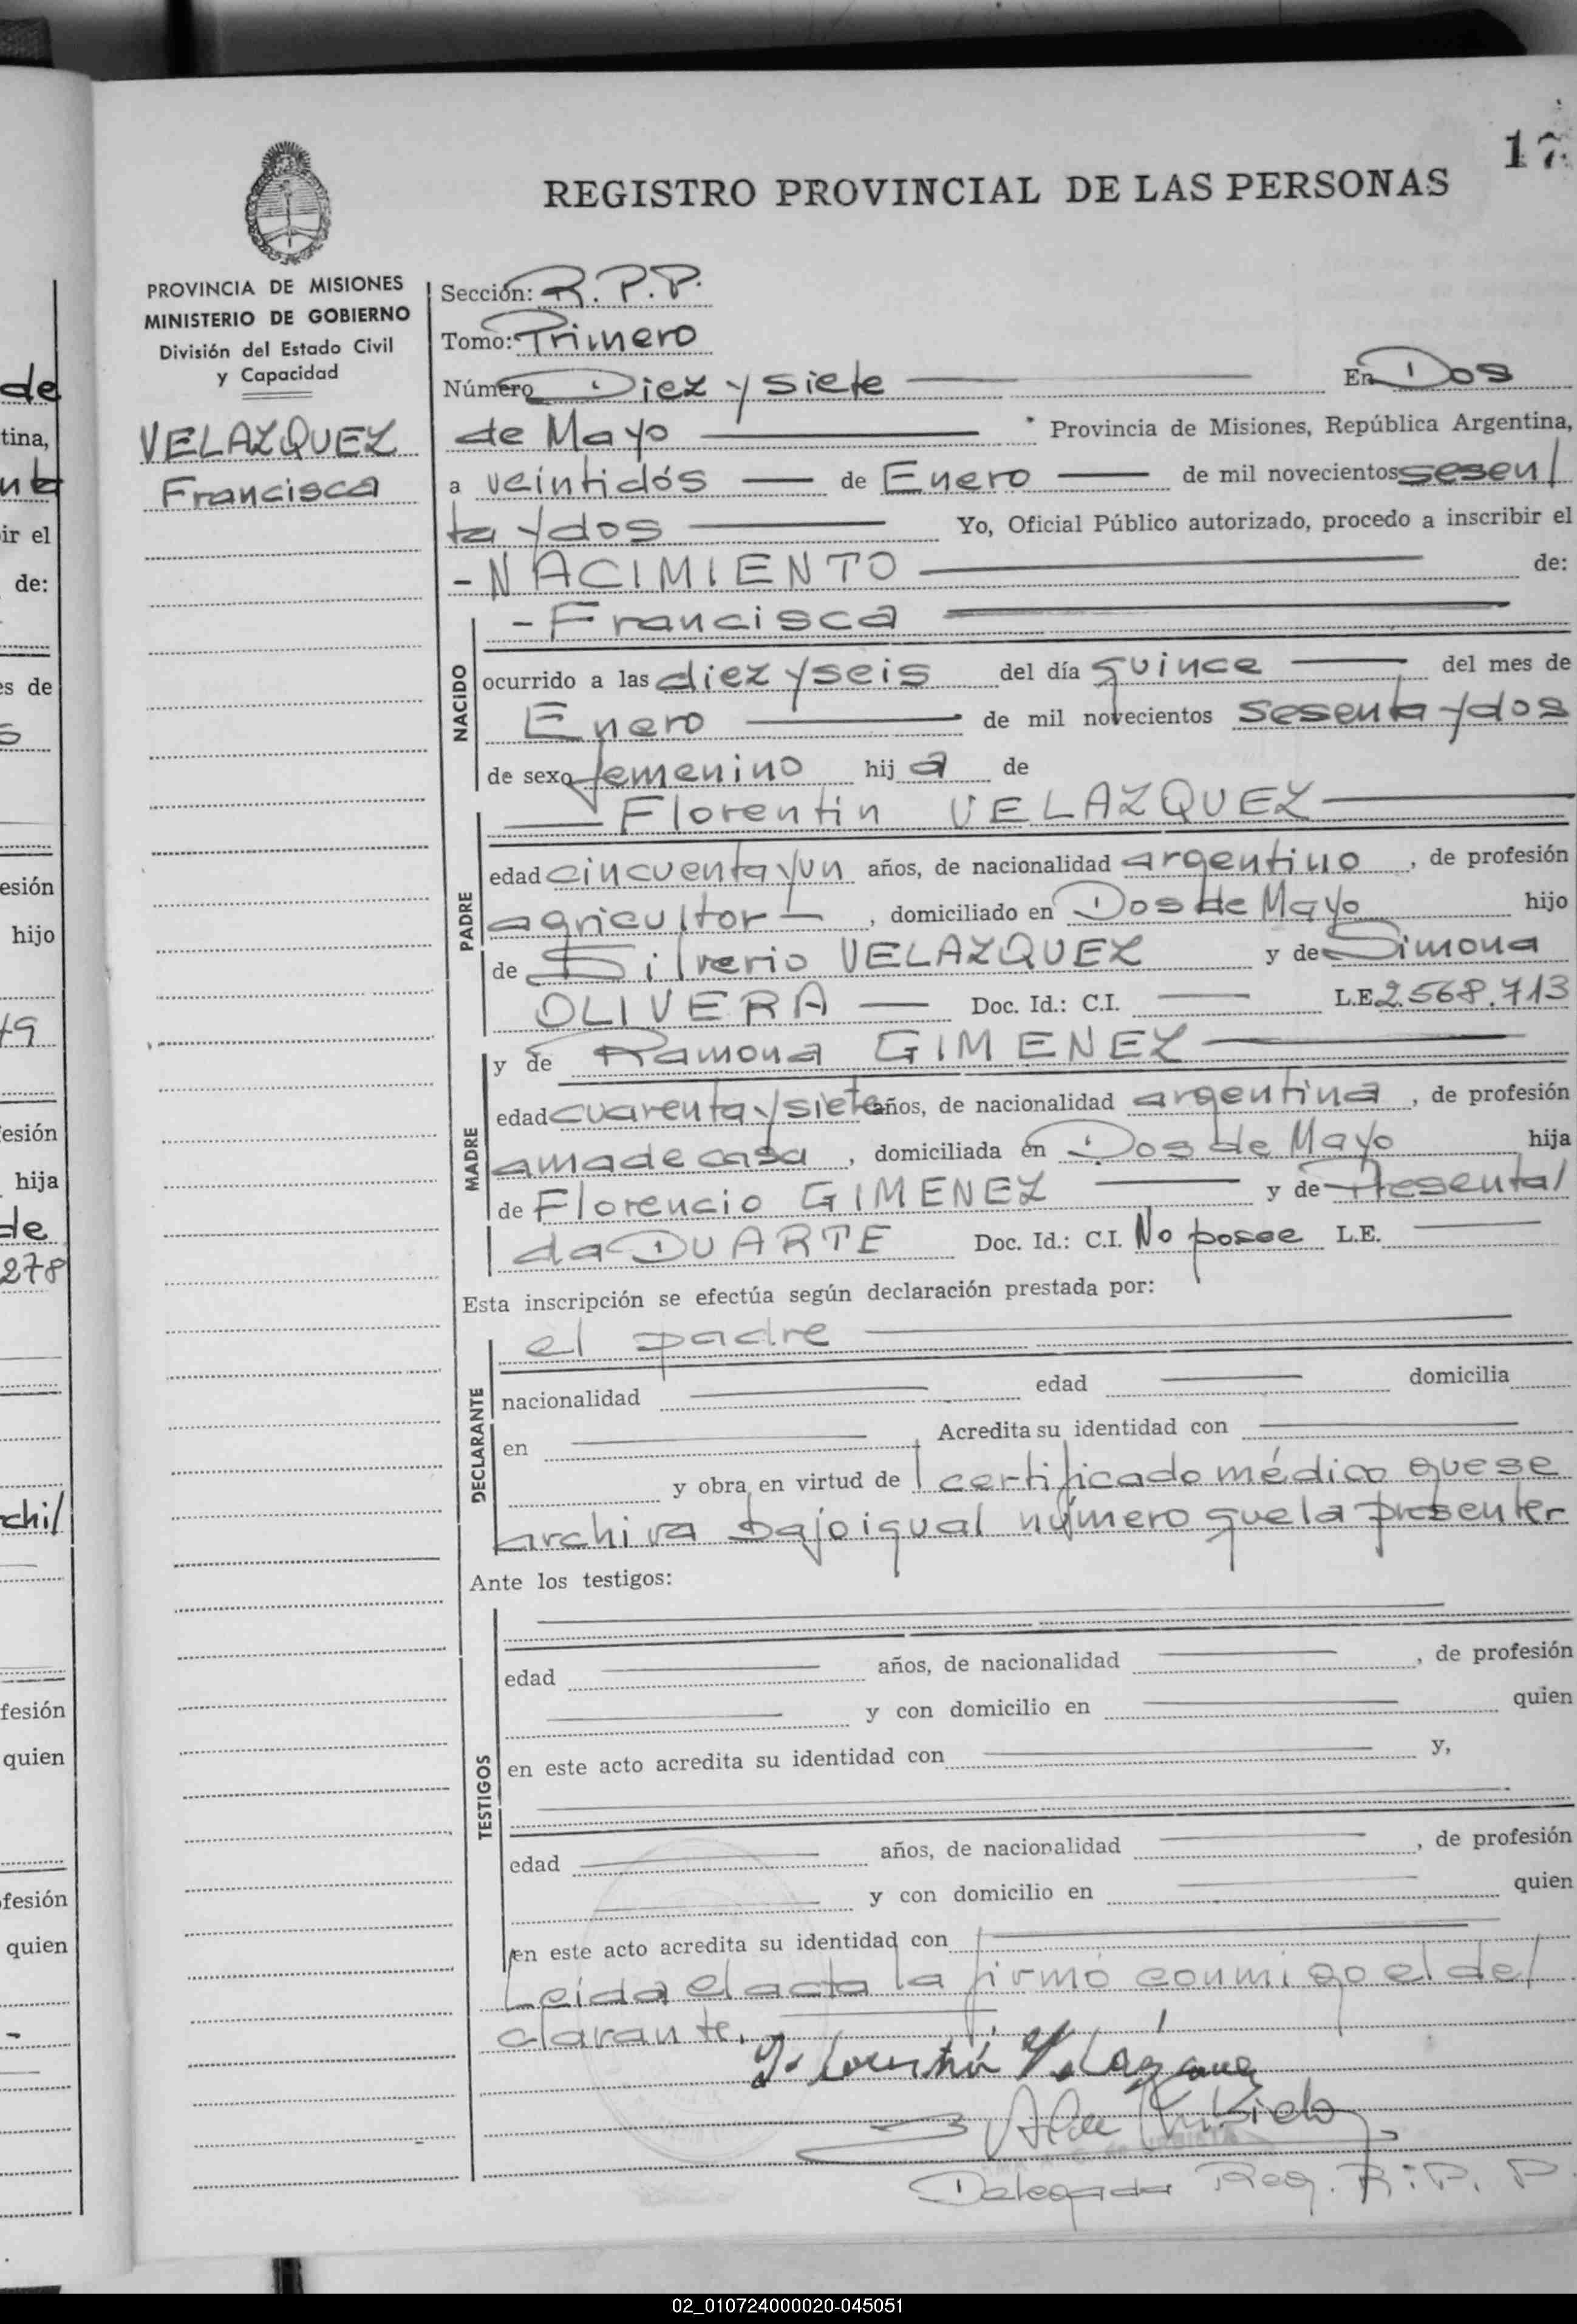 17
REGISTRO PROVINCIAL DE LAS PERSONAS
PROVINCIA DE MISIONES
MINISTERIO DE GOBIERNO
División del Estado Civil
y Capacidad
VELAZQUEZ
Francisca
Sección: R.P.P.
Tomo: Primero
Número Diez y siete En Dos
de Mayo Provincia de Misiones, República Argentina,
a veintidós de Enero de mil novecientos sesen/
ta y dos Yo, Oficial Público autorizado, procedo a inscribir el
- NACIMIENTO de:
NACIDO
- Francisca
ocurrido a las diez y seis del día quince del mes de
Enero de mil novecientos sesenta y dos
de sexo femenino hij a de
PADRE
Florentin VELAZQUEZ
edad cincuenta y un años, de nacionalidad argentino, de profesión
agricultor, domiciliado en Dos de Mayo hijo
de Silverio VELAZQUEZ y de Simona
OLIVERA Doc. Id.: C.I. L.E. 2.568.713
MADRE
y de Ramona GIMENEZ
edad cuarenta y siete años, de nacionalidad argentina, de profesión
ama de casa, domiciliada en Dos de Mayo hija
de Florencio GIMENEZ y de Presenta/
da DUARTE Doc. Id.: C.I. No posee L.E.
Esta inscripción se efectúa según declaración prestada por:
DECLARANTE
el padre
nacionalidad edad domicilia
en Acredita su identidad con
y obra en virtud de l certificado médico que se
archiva bajo igual número que la presente
Ante los testigos:
TESTIGOS
edad años, de nacionalidad , de profesión
y con domicilio en quien
en este acto acredita su identidad con y,
edad años, de nacionalidad , de profesión
y con domicilio en quien
en este acto acredita su identidad con
Leida el acta la firmó conmigo el de/
clarante.
Delegada Reg. R.P.P.
de
tina,
ir el
de:
s de
esión
hijo
49
esión
hija
de
278
chi/
fesión
quien
fesión
quien
02_010724000020-045051